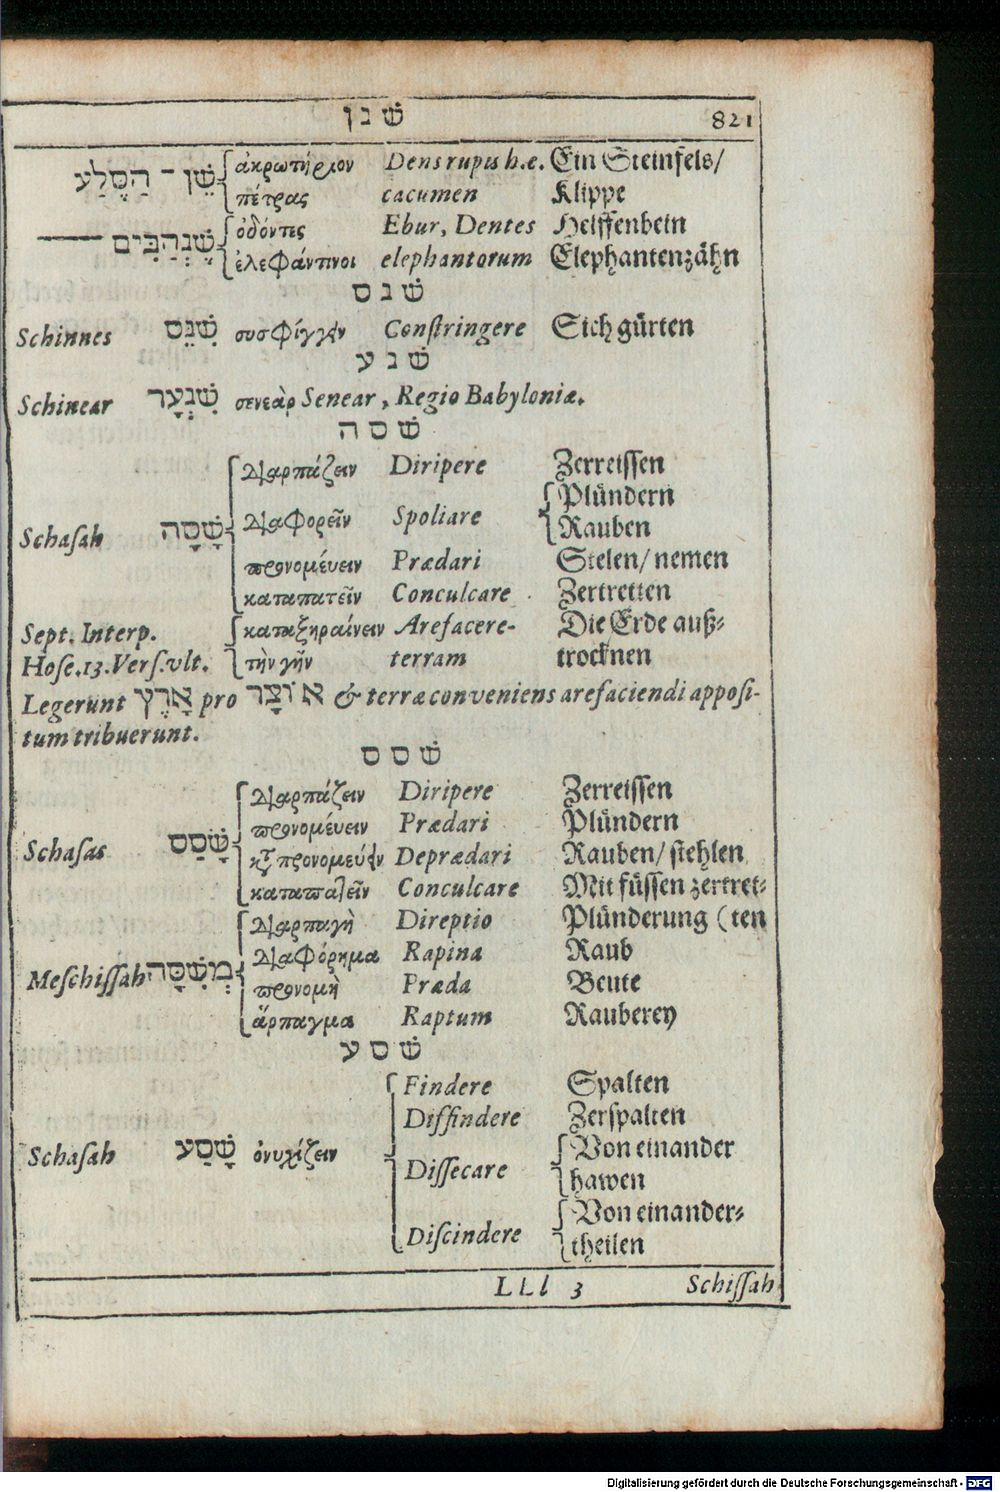 שׁנן 821
שֵׁן־הַסֶּלַע ἀκρωτήριον Dens rupis h.e. Ein Steinfels/
πέτρας cacumen Klippe
שֶׁנְהַבִּים ὀδόντες Ebur, Dentes Helffenbein
ἐλεφάντινοι elephantorum Elephantenzähn
שׁנס
Schinnes שִׁנֵּס συσφίγγειν Conſtringere Sich gürten
שׁנע
Schinear שִׁנְעָר σενεὰρ Senear, Regio Babyloniæ.
שׁסה
διαρπάζειν Diripere Zerreissen
Plündern
Schaſah שָׁסָה διαφορεῖν Spoliare Rauben
προνομέυειν Prædari Stelen/ nemen
καταπατεῖν Conculcare Zertretten
Sept. Interp. καταξηραίνειν Arefacere- Die Erde auß-
Hoſe.13.Verſ.vlt. τὴν γῆν terram trocknen
Legerunt אָרֶץ pro אוֹצָר & terræ conveniens arefaciendi appoſi-
tum tribuerunt.
שׁסס
διαρπάζειν Diripere Zerreissen
προνομέυειν Prædari Plündern
Schaſas שָׁסַס καταπρονομεύειν Deprædari Rauben/ stehlen
καταπατεῖν Conculcare Mit füssen zertret-
διαρπαγὴ Direptio Plünderung (ten
διαφόρημα Rapina Raub
Meſchiſſah מְשִׁסָּה προνομὴ Præda Beute
ἅρπαγμα Raptum Rauberey
שׁסע
Findere Spalten
Diffindere Zerspalten
Von einander
Schaſah שָׁסַע ὀνυχίζειν Diſſecare hawen
Von einander-
Diſcindere theilen
LLl 3 Schiſſah
Digitalisierung gefördert durch die Deutsche Forschungsgemeinschaft - DFG